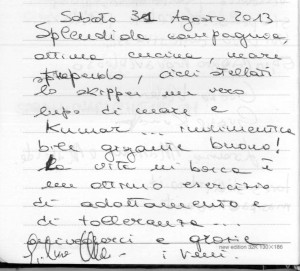 Sabato 31 Agosto 2013
Splendida compagnia,
ottima cucina, mare
stupendo, cieli stellati
lo skipper un vero
lupo di mare e
Kumar... indimentica
bile gigante buono!
La vita in barca è
un ottimo esercizio
di adattamento e
di tolleranza...
arrivederci e grazie
- i Veri.
new edition 32K 130×186